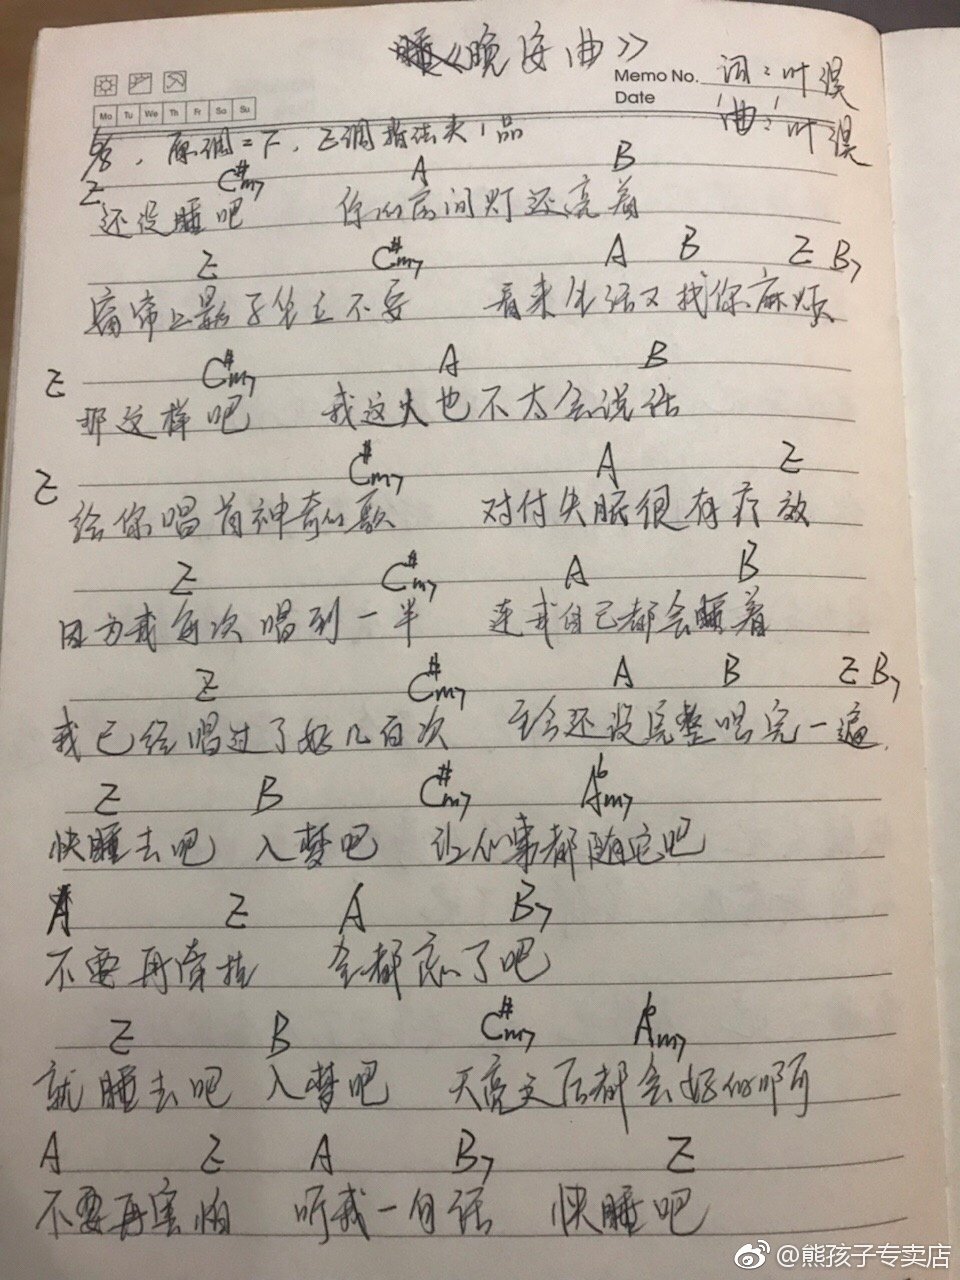 《晚安曲》
Memo No. 词:叶误
Date 曲:叶误
Mo Tu We Th Fr Sa Su
6/8, 原调=F, E调指法夹1品
E C#m7 A B
还没睡吧 你的房间灯还亮着
E C#m7 A B E B7
窗帘上影子坐立不安 看来生活又找你麻烦
E C#m7 A B
那这样吧 我这人也不太会说话
E C#m7 A E
给你唱首神奇的歌 对付失眠很有疗效
E C#m7 A B
因为我每次唱到一半 连我自己都会睡着
E C#m7 A B E B7
我已经唱过了好几百次 至今还没完整唱完一遍
E B C#m7 Abm7
快睡去吧 入梦吧 让的事都随它吧
A E A B7
不要再牵挂 全都忘了吧
E B C#m7 Abm7
就睡去吧 入梦吧 天亮之后都会好的啊
A E A B7 E
不要再害怕 听我一句话 快睡吧
@熊孩子专卖店